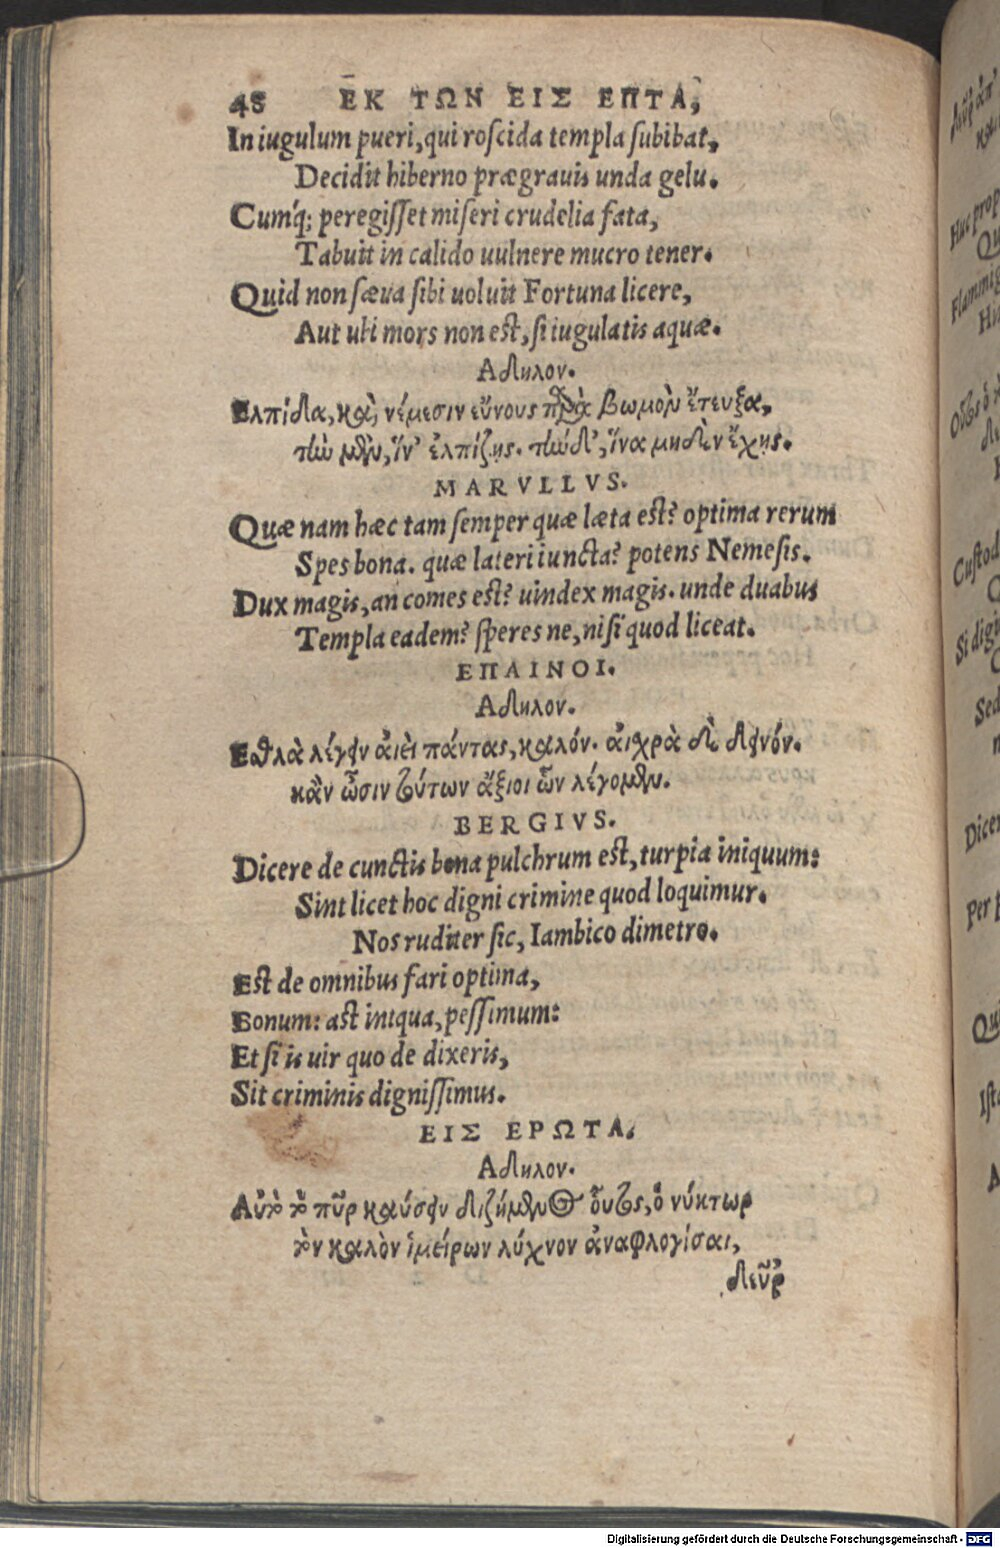 48 ΕΚ ΤΩΝ ΕΙΣ ΕΠΤΑ,
In iugulum pueri, qui roscida templa subibat,
Decidit hiberno prægrauis unda gelu.
Cumq́; peregisset miseri crudelia fata,
Tabuit in calido uulnere mucro tener.
Quid non sæua sibi uoluit Fortuna licere,
Aut ubi mors non est, si iugulatis aquæ.
Αδηλον.
Ελπίδα, καὶ νέμεσιν εὔνους παρὰ βωμὸν ἔτευξα,
τὴν μὲν, ἵν' ἐλπίζῃς. τὴν δ', ἵνα μηδὲν ἔχῃς.
MARVLLVS.
Quæ nam hæc tam semper quæ læta est? optima rerum
Spes bona. quæ lateri iuncta? potens Nemesis.
Dux magis, an comes est? uindex magis. unde duabus
Templa eadem? speres ne, nisi quod liceat.
ΕΠΑΙΝΟΙ.
Αδηλον.
Εσθλὰ λέγειν ἀιεὶ πάντας, καλόν. ἀιχρὰ δὲ δεινόν.
κἂν ὦσιν τούτων ἄξιοι ὧν λέγομεν.
BERGIVS.
Dicere de cunctis bona pulchrum est, turpia iniquum:
Sint licet hoc digni crimine quod loquimur.
Nos ruditer sic, Iambico dimetro.
Est de omnibus fari optima,
Bonum: ast iniqua, pessimum:
Et si is uir quo de dixeris,
Sit criminis dignissimus.
ΕΙΣ ΕΡΩΤΑ.
Αδηλον.
Αὐτὸ τὸ πῦρ καύσειν διζήμενος οὗτος, ὁ νύκτωρ
τὸν καλὸν ἱμείρων λύχνον ἀναφλογίσαι,
δεῦρ
Digitalisierung gefördert durch die Deutsche Forschungsgemeinschaft - DFG